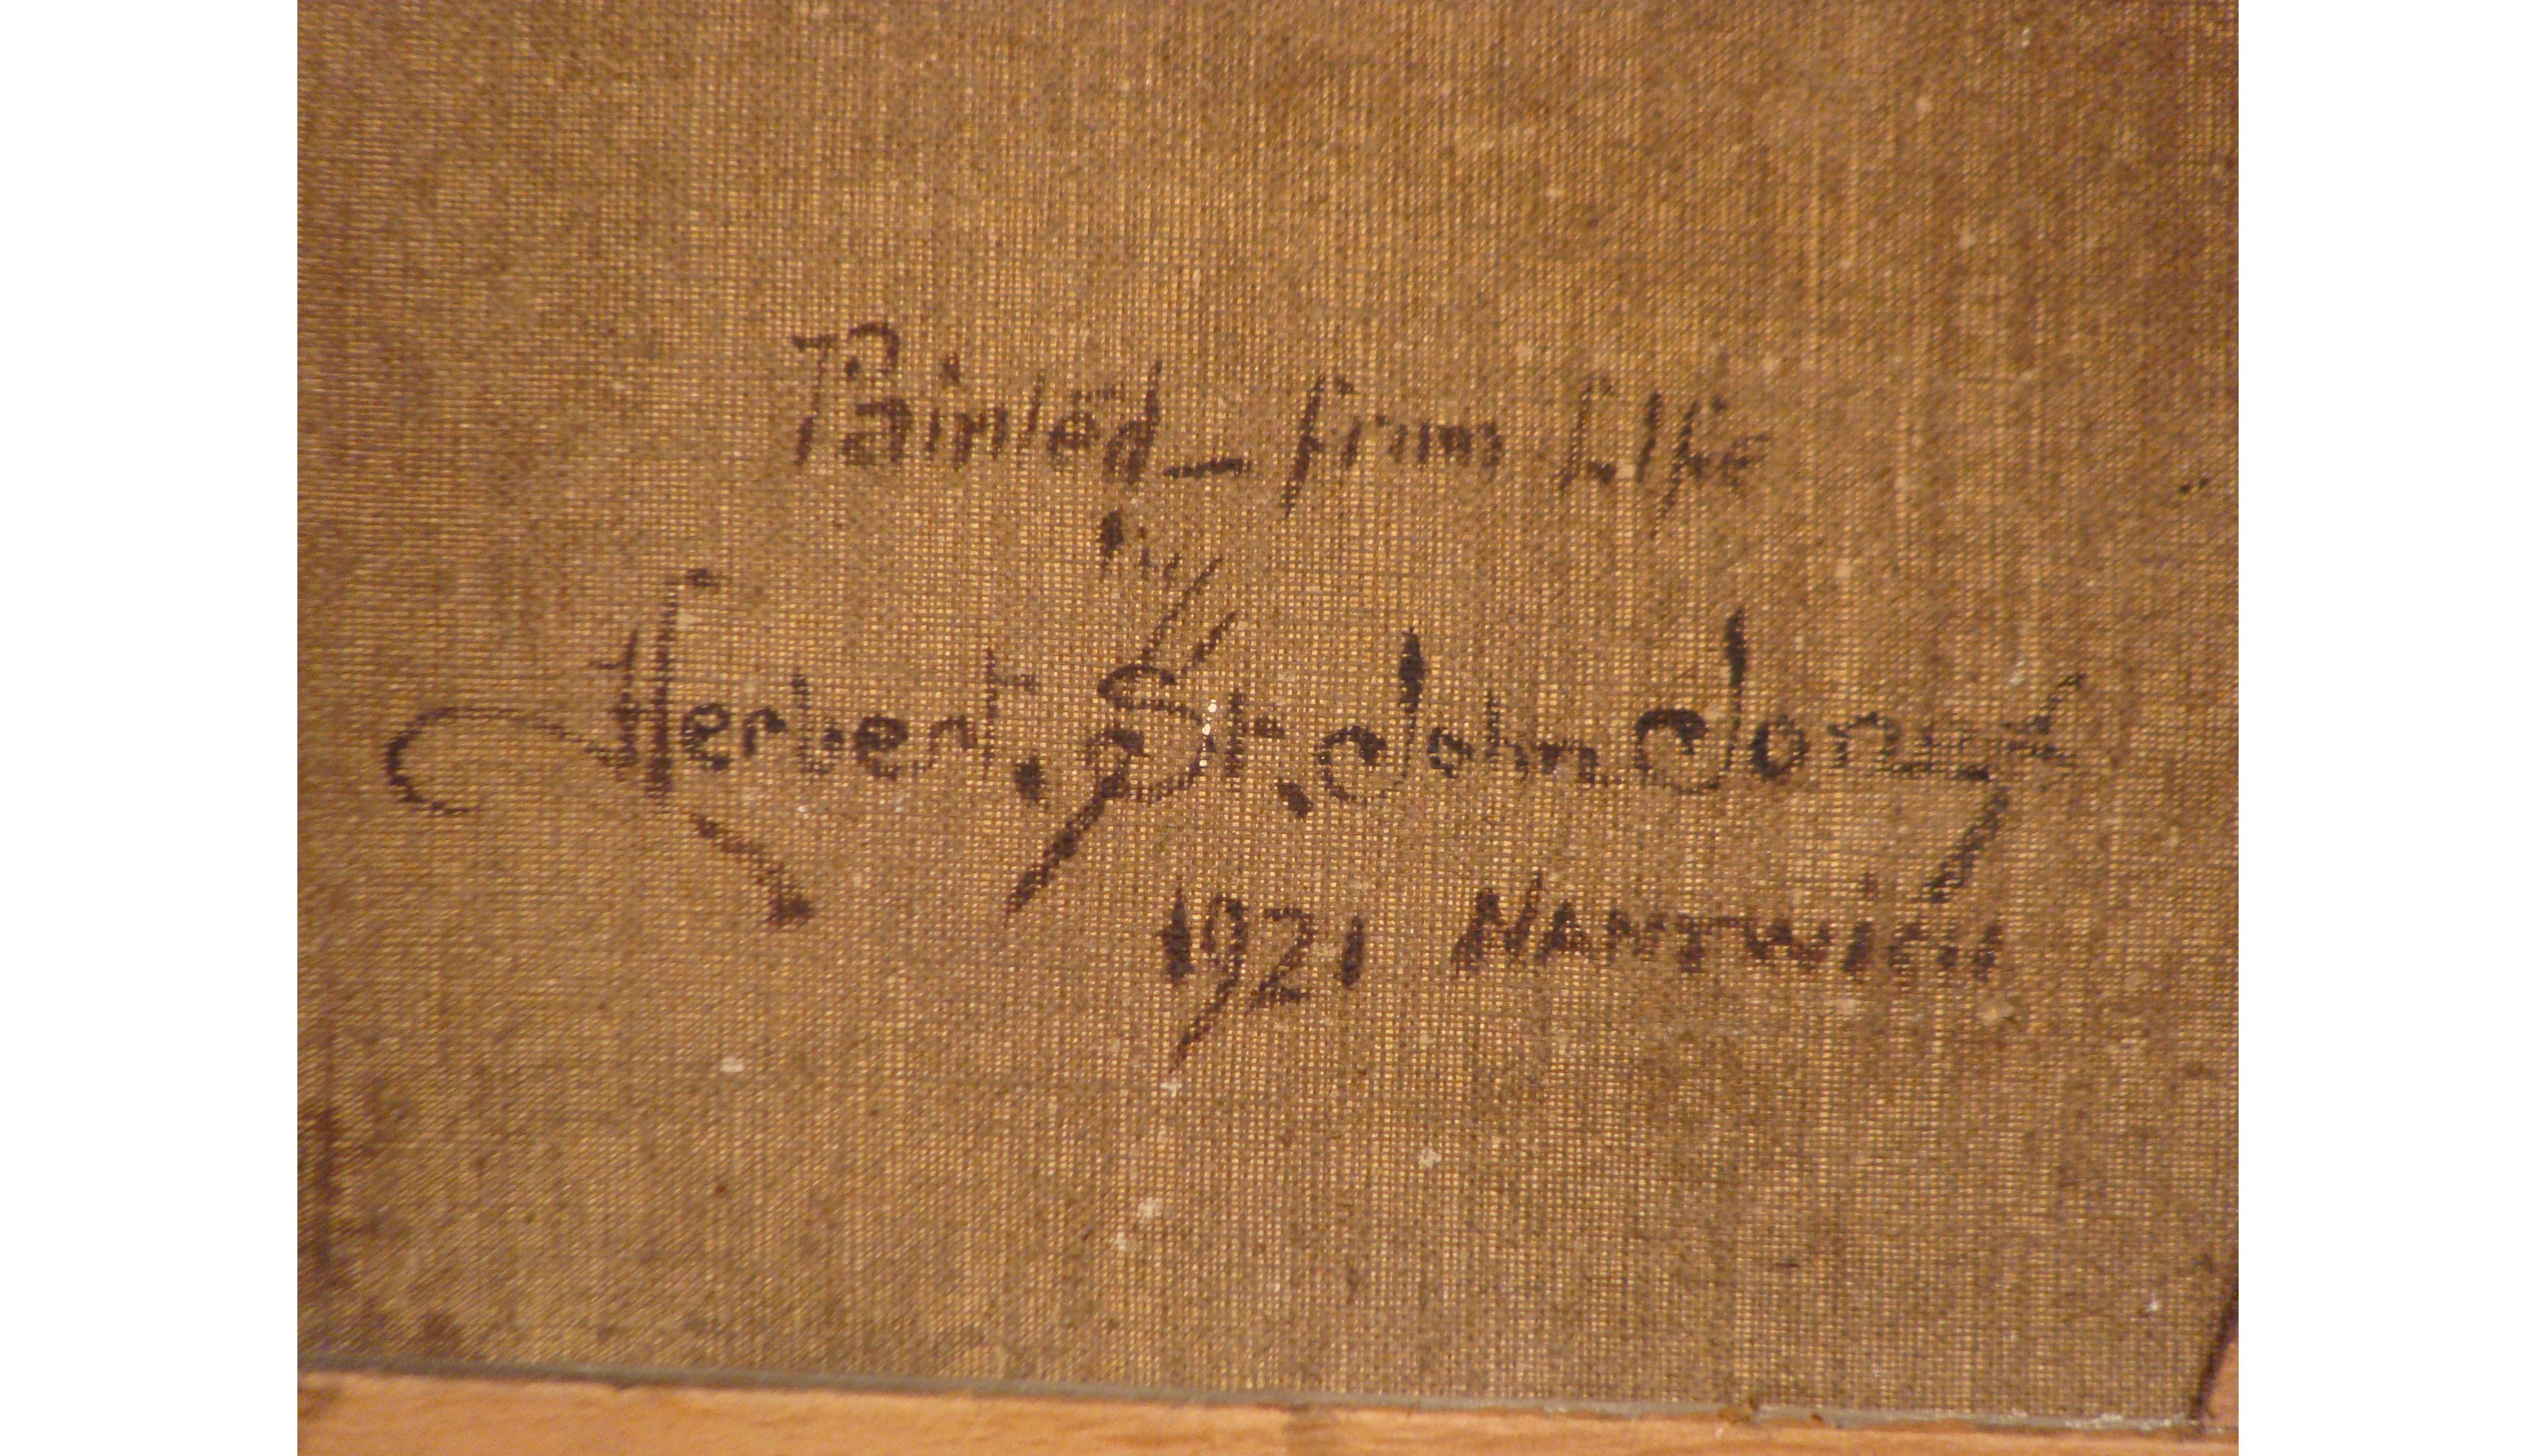 Painted – from Life
by
Herbert. St. John Jones
1921 NANTWICH